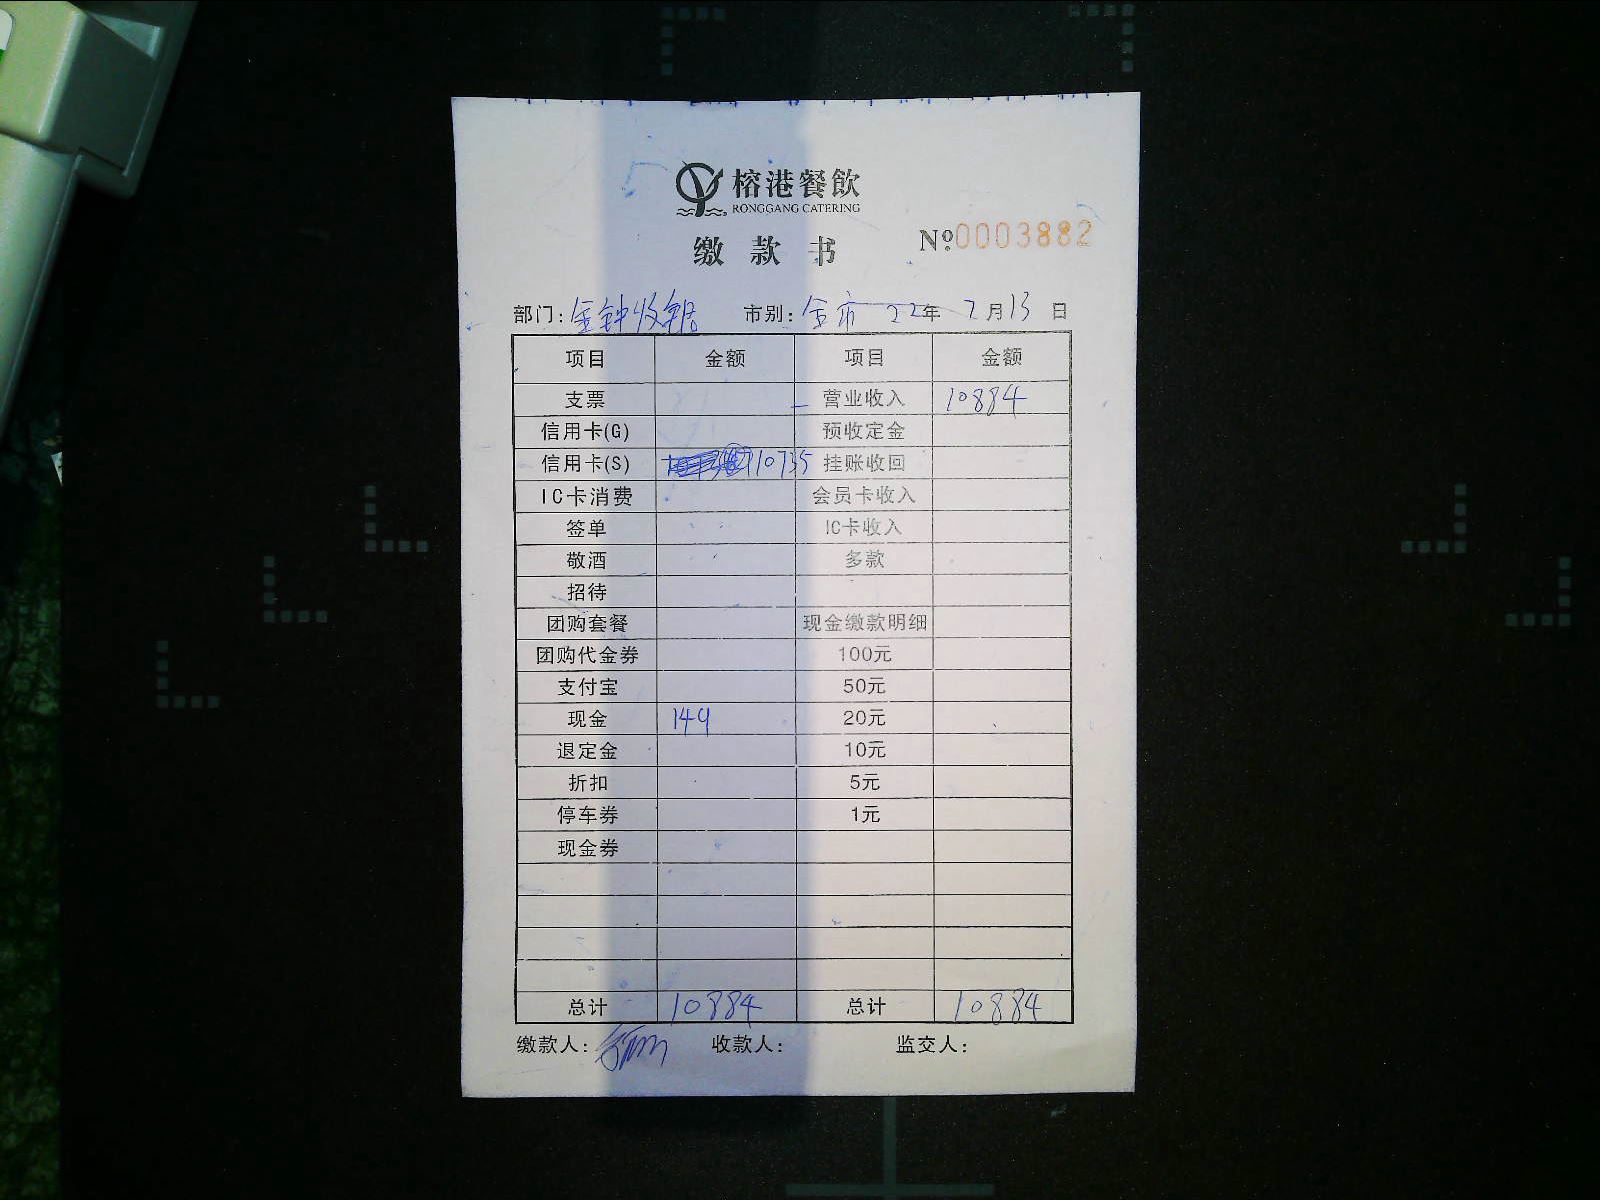 榕港餐飲
RONGGANG CATERING
缴款书 №0003882
部门:金钟收银 市别:全市 22年 7月13日
项目 金额 项目 金额
支票 营业收入 10884
信用卡(G) 预收定金
信用卡(S) 10735 挂账收回
IC卡消费 会员卡收入
签单 IC卡收入
敬酒 多款
招待
团购套餐 现金缴款明细
团购代金券 100元
支付宝 50元
现金 149 20元
退定金 10元
折扣 5元
停车券 1元
现金券
总计 10884 总计 10884
缴款人: 收款人: 监交人: